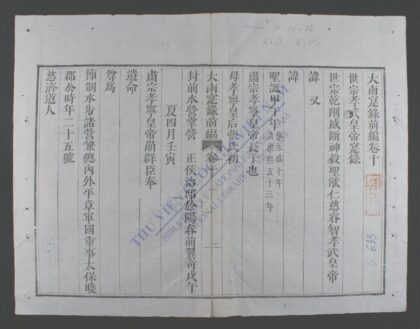 大南寔錄前編卷十
世宗孝武皇帝寔錄
世宗乾剛威斷神毅聖猷仁慈睿智孝武皇帝
諱
又
諱
聖誕甲午年
肅宗孝寧皇帝長子也
母孝寧皇后張氏初
大南寔錄前編 卷十
封前水營掌營 正侯
夏四月壬寅
肅宗孝寧皇帝崩群臣奉
遺命
尊爲
節制水步諸營兼總內外平章軍國重事太保曉
郡公時年二十五號
慈濟道人
THƯ VIỆN QUỐC GIA VIỆT NAM